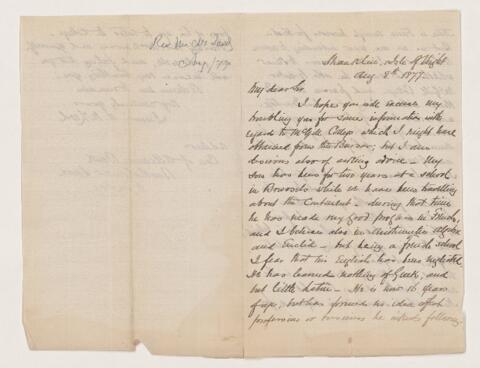 Shanklin, Isle of Wight
Aug. 8th 1877
My dear Sir
I hope you will excuse my
troubling you for some information with
regards to McGill College which I might have
obtained from the Bursar; but I am
desirous also of asking advice - My
son has been for two years at a school
in Brussels while we have been travelling
about the Continent - during that time
he has made very good progress in French,
and I believe also in Arithmetic algebra
and Euclid - but being a French school
I fear that his English has been neglected
He has learned nothing of Greek, and
but little Latin - He is now 16 years
of age, but has formed no idea of what
profession or business he intends following.